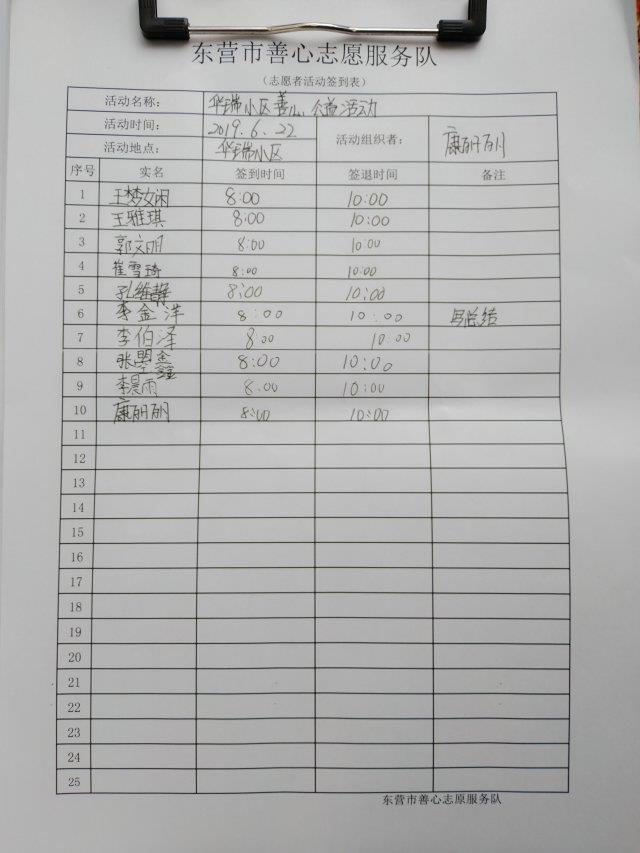 东营市善心志愿服务队
（志愿者活动签到表）
活动名称： 华瑞小区善心公益活动
活动时间： 2019.6.22 活动组织者： 康丽丽
活动地点： 华瑞小区
序号 实名 签到时间 签退时间 备注
1 王梦娴 8:00 10:00
2 王雅琪 8:00 10:00
3 郭文明 8:00 10:00
4 崔雪琦 8:00 10:00
5 孔维静 8:00 10:00
6 李金洋 8:00 10:00 写总结
7 李伯泽 8:00 10:00
8 张鑫 8:00 10:00
9 李晨雨 8:00 10:00
10 康丽丽 8:00 10:00
11
12
13
14
15
16
17
18
19
20
21
22
23
24
25
东营市善心志愿服务队